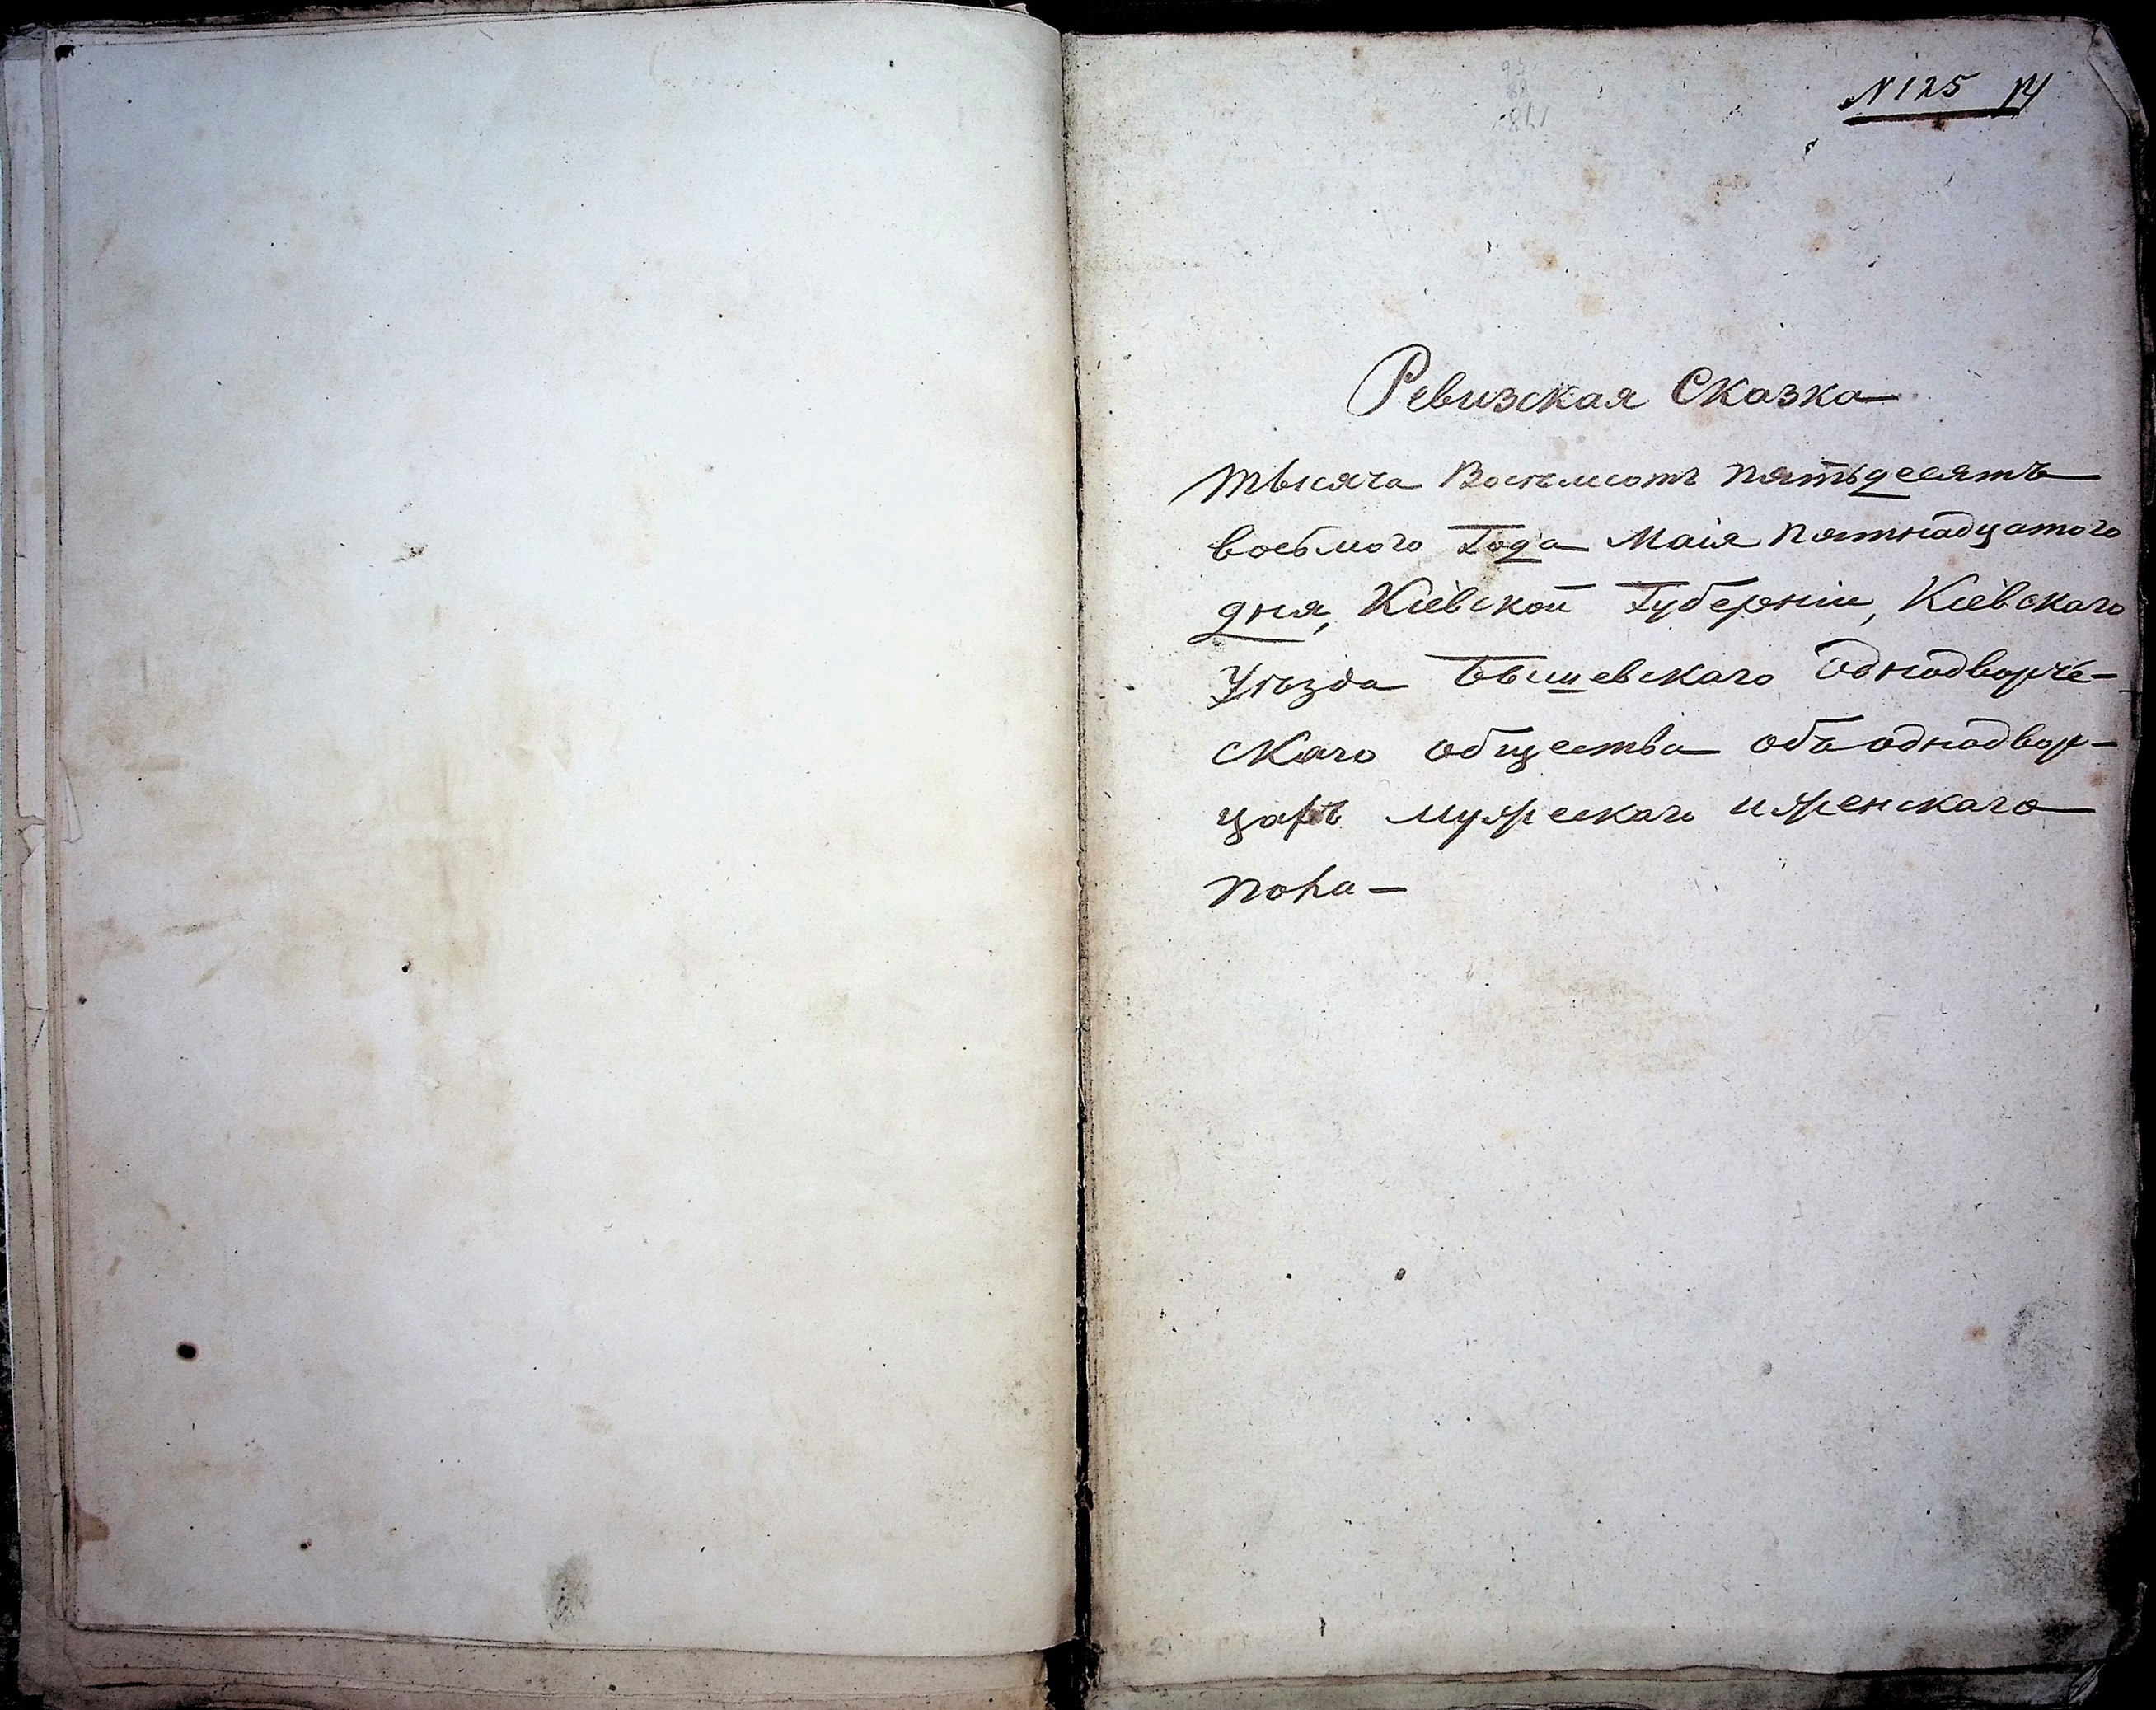 N 125
Ревизская Сказка
Тысяча Восемсотъ пятьдесятъ
восьмого Года Маія пятнадцатого
дня, Кіевской Губерніи, Кіевскаго
Уѣзда Бышевскаго Однодворче-
скаго общества объ однодвор-
цахъ мужескаго и женскаго
пола